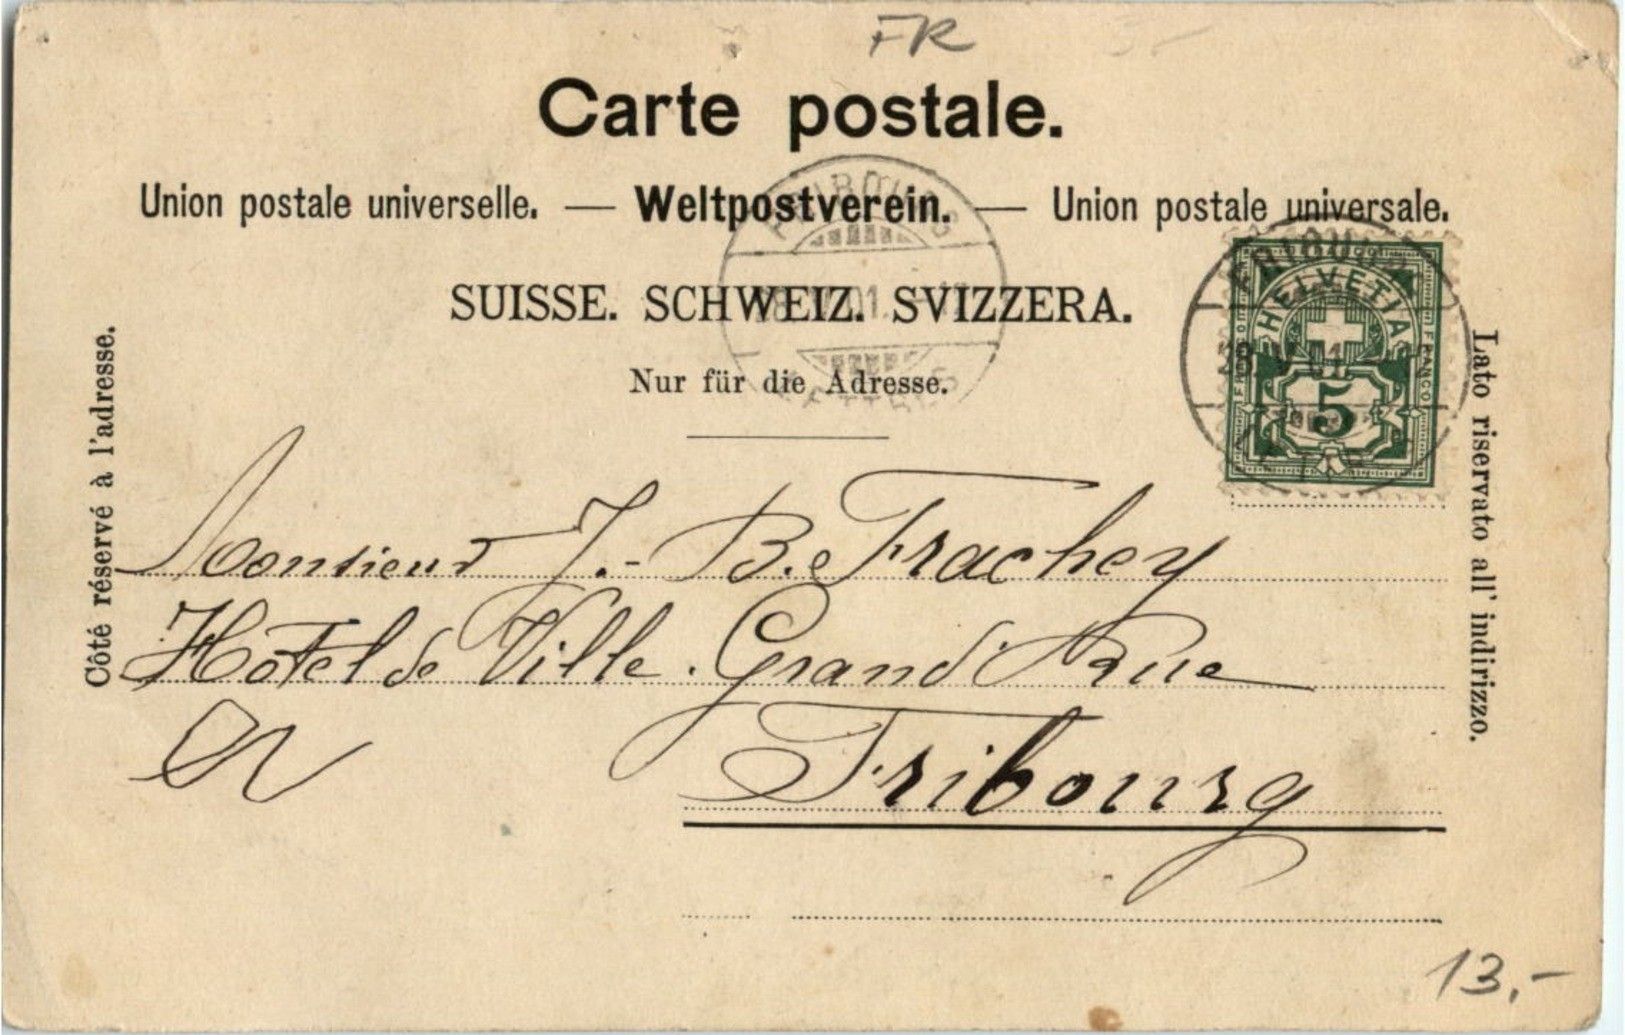 FR
Carte postale.
Union postale universelle. — Weltpostverein. — Union postale universale.
FRIBOURG
SUISSE. SCHWEIZ. SVIZZERA.
Nur für die Adresse.
FRIBOURG
HELVETIA
FRANCO
5
Côté réservé à l'adresse.
Lato riservato all' indirizzo.
Monsieur J.-B. Frachey
Hôtel de Ville. Grand'Rue
Fribourg
13,-